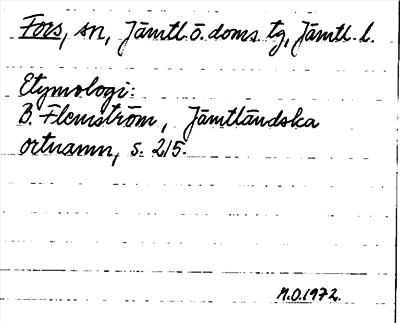 Fors, sn, Jämtl. ö. doms. tg, Jämtl. l.
Etymologi:
B. Flemström, Jämtländska
ortnamn, s. 215.
M.O.1972.